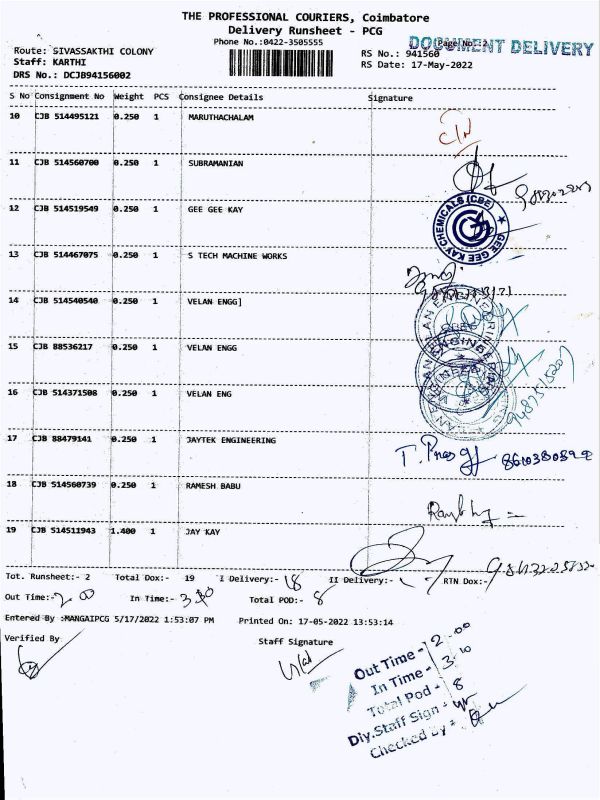 THE PROFESSIONAL COURIERS, Coimbatore
Delivery Runsheet - PCG
Phone No.:0422-3505555
Page No.:2
DOCUMENT DELIVERY
Route: SIVASSAKTHI COLONY
RS No.: 941560
Staff: KARTHI
RS Date: 17-May-2022
DRS No.: DCJB94156002
S No Consignment No Weight PCS Consignee Details Signature
10 CJB 514495121 0.250 1 MARUTHACHALAM
11 CJB 514560700 0.250 1 SUBRAMANIAN
12 CJB 514519549 0.250 1 GEE GEE KAY
GEE GEE KAY CHEMICALS (CBE)
13 CJB 514467075 0.250 1 S TECH MACHINE WORKS
14 CJB 514540540 0.250 1 VELAN ENGG]
15 CJB 88536217 0.250 1 VELAN ENGG
16 CJB 514371508 0.250 1 VELAN ENG
17 CJB 88479141 0.250 1 JAYTEK ENGINEERING
18 CJB 514560739 0.250 1 RAMESH BABU
19 CJB 514511943 1.400 1 JAY KAY
Tot. Runsheet:- 2 Total Dox:- 19 I Delivery:- 18 II Delivery:- RTN Dox:-
Out Time:- 2.00 In Time:- 3.10 Total POD:- 8
Entered By :MANGAIPCG 5/17/2022 1:53:07 PM Printed On: 17-05-2022 13:53:14
Verified By Staff Signature
Out Time - 2.00
In Time - 3.10
Total Pod - 8
Diy.Staff Sign -
Checked by -